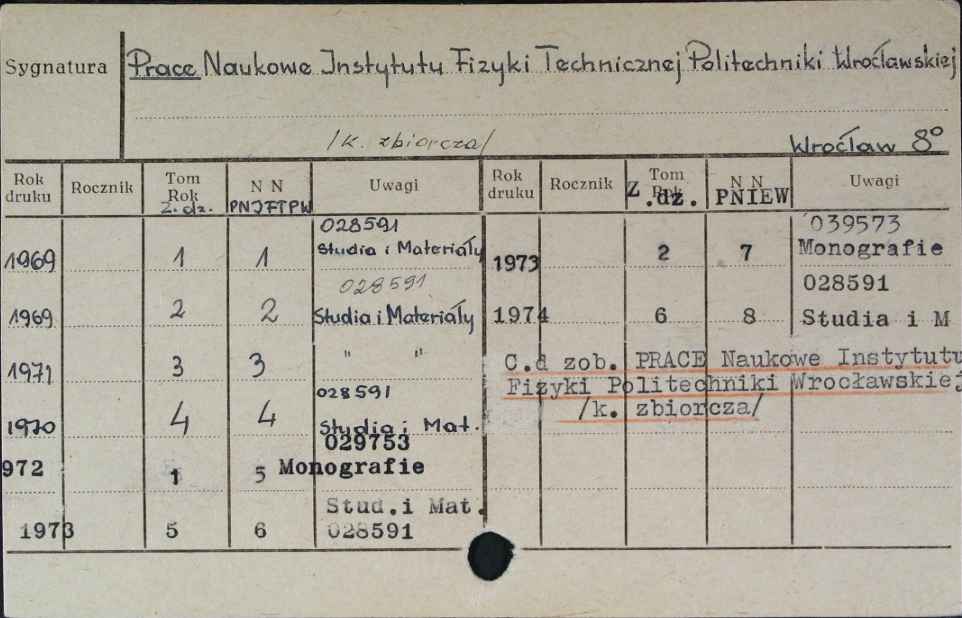 Sygnatura Prace Naukowe Instytutu Fizyki Technicznej Politechniki Wrocławskiej
/k. zbiorcza/ Wrocław 8°
Rok druku Rocznik Tom Rok N N Uwagi Rok druku Rocznik Tom Rok N N Uwagi
Z. dz. PNIFTPW Z.dz. PNIEW
1969 1 1 028591 Studia i Materiały
1969 2 2 028591 Studia i Materiały
1971 3 3 " "
1970 4 4 028591 Studia i Mat.
972 1 5 029753 Monografie
1973 5 6 Stud.i Mat. 028591
1973 2 7 039573 Monografie
1974 6 8 028591 Studia i M
C.d zob. PRACE Naukowe Instytutu
Fizyki Politechniki Wrocławskiej
/k. zbiorcza/